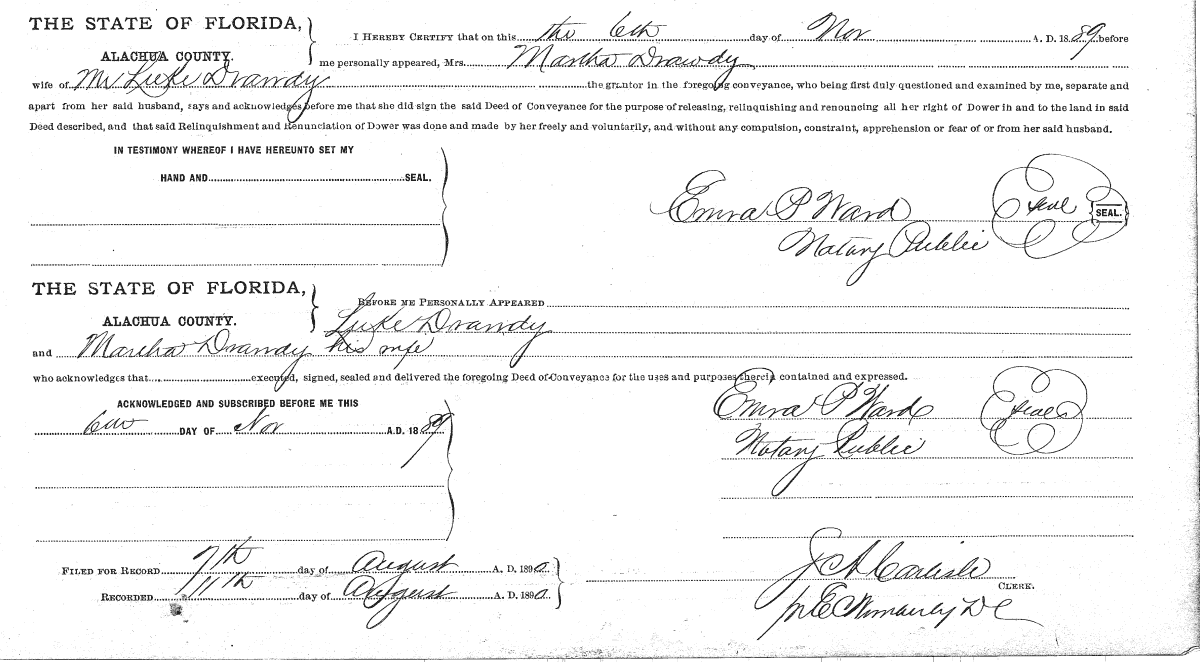 THE STATE OF FLORIDA,
ALACHUA COUNTY.
I HEREBY CERTIFY that on this the 6th day of Nov A. D. 1889, before
me personally appeared, Mrs. Martha Drawdy
wife of Mr Luke Drawdy the grantor in the foregoing conveyance, who being first duly questioned and examined by me, separate and
apart from her said husband, says and acknowledges before me that she did sign the said Deed of Conveyance for the purpose of releasing, relinquishing and renouncing all her right of Dower in and to the land in said
Deed described, and that said Relinquishment and Renunciation of Dower was done and made by her freely and voluntarily, and without any compulsion, constraint, apprehension or fear of or from her said husband.
IN TESTIMONY WHEREOF I HAVE HEREUNTO SET MY
HAND AND SEAL.
P Ward Seal SEAL.
Notary Public
THE STATE OF FLORIDA,
ALACHUA COUNTY.
BEFORE ME PERSONALLY APPEARED
Luke Drawdy
and Martha Drawdy his wife
who acknowledges that executed, signed, sealed and delivered the foregoing Deed of Conveyance for the uses and purposes therein contained and expressed.
ACKNOWLEDGED AND SUBSCRIBED BEFORE ME THIS
6th DAY OF Nov A.D. 1889
P Ward Seal
Notary Public
FILED FOR RECORD 7th day of August A. D. 1890.
RECORDED 11th day of August A. D. 1890.
J A Carlisle
CLERK.
pr E C Wimberly DC